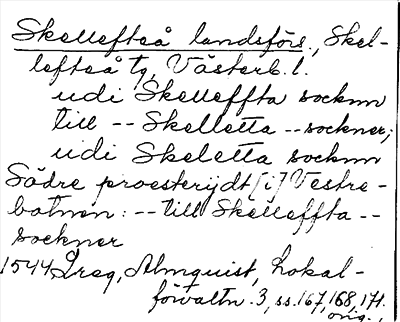 Skellefteå landsförs., Skel-
lefteå tg, Västerb. l.
udi Skelleffta socknn
till -- Skelletta -- sockner;
udi Skeletta socknn
Södre proesterijdt [i] Vestre-
botnen: -- till Skelleffta --
sockner
1544 Greg, Almquist, Lokal-
förvaltn. 3, ss. 167, 168, 171.
orig.,